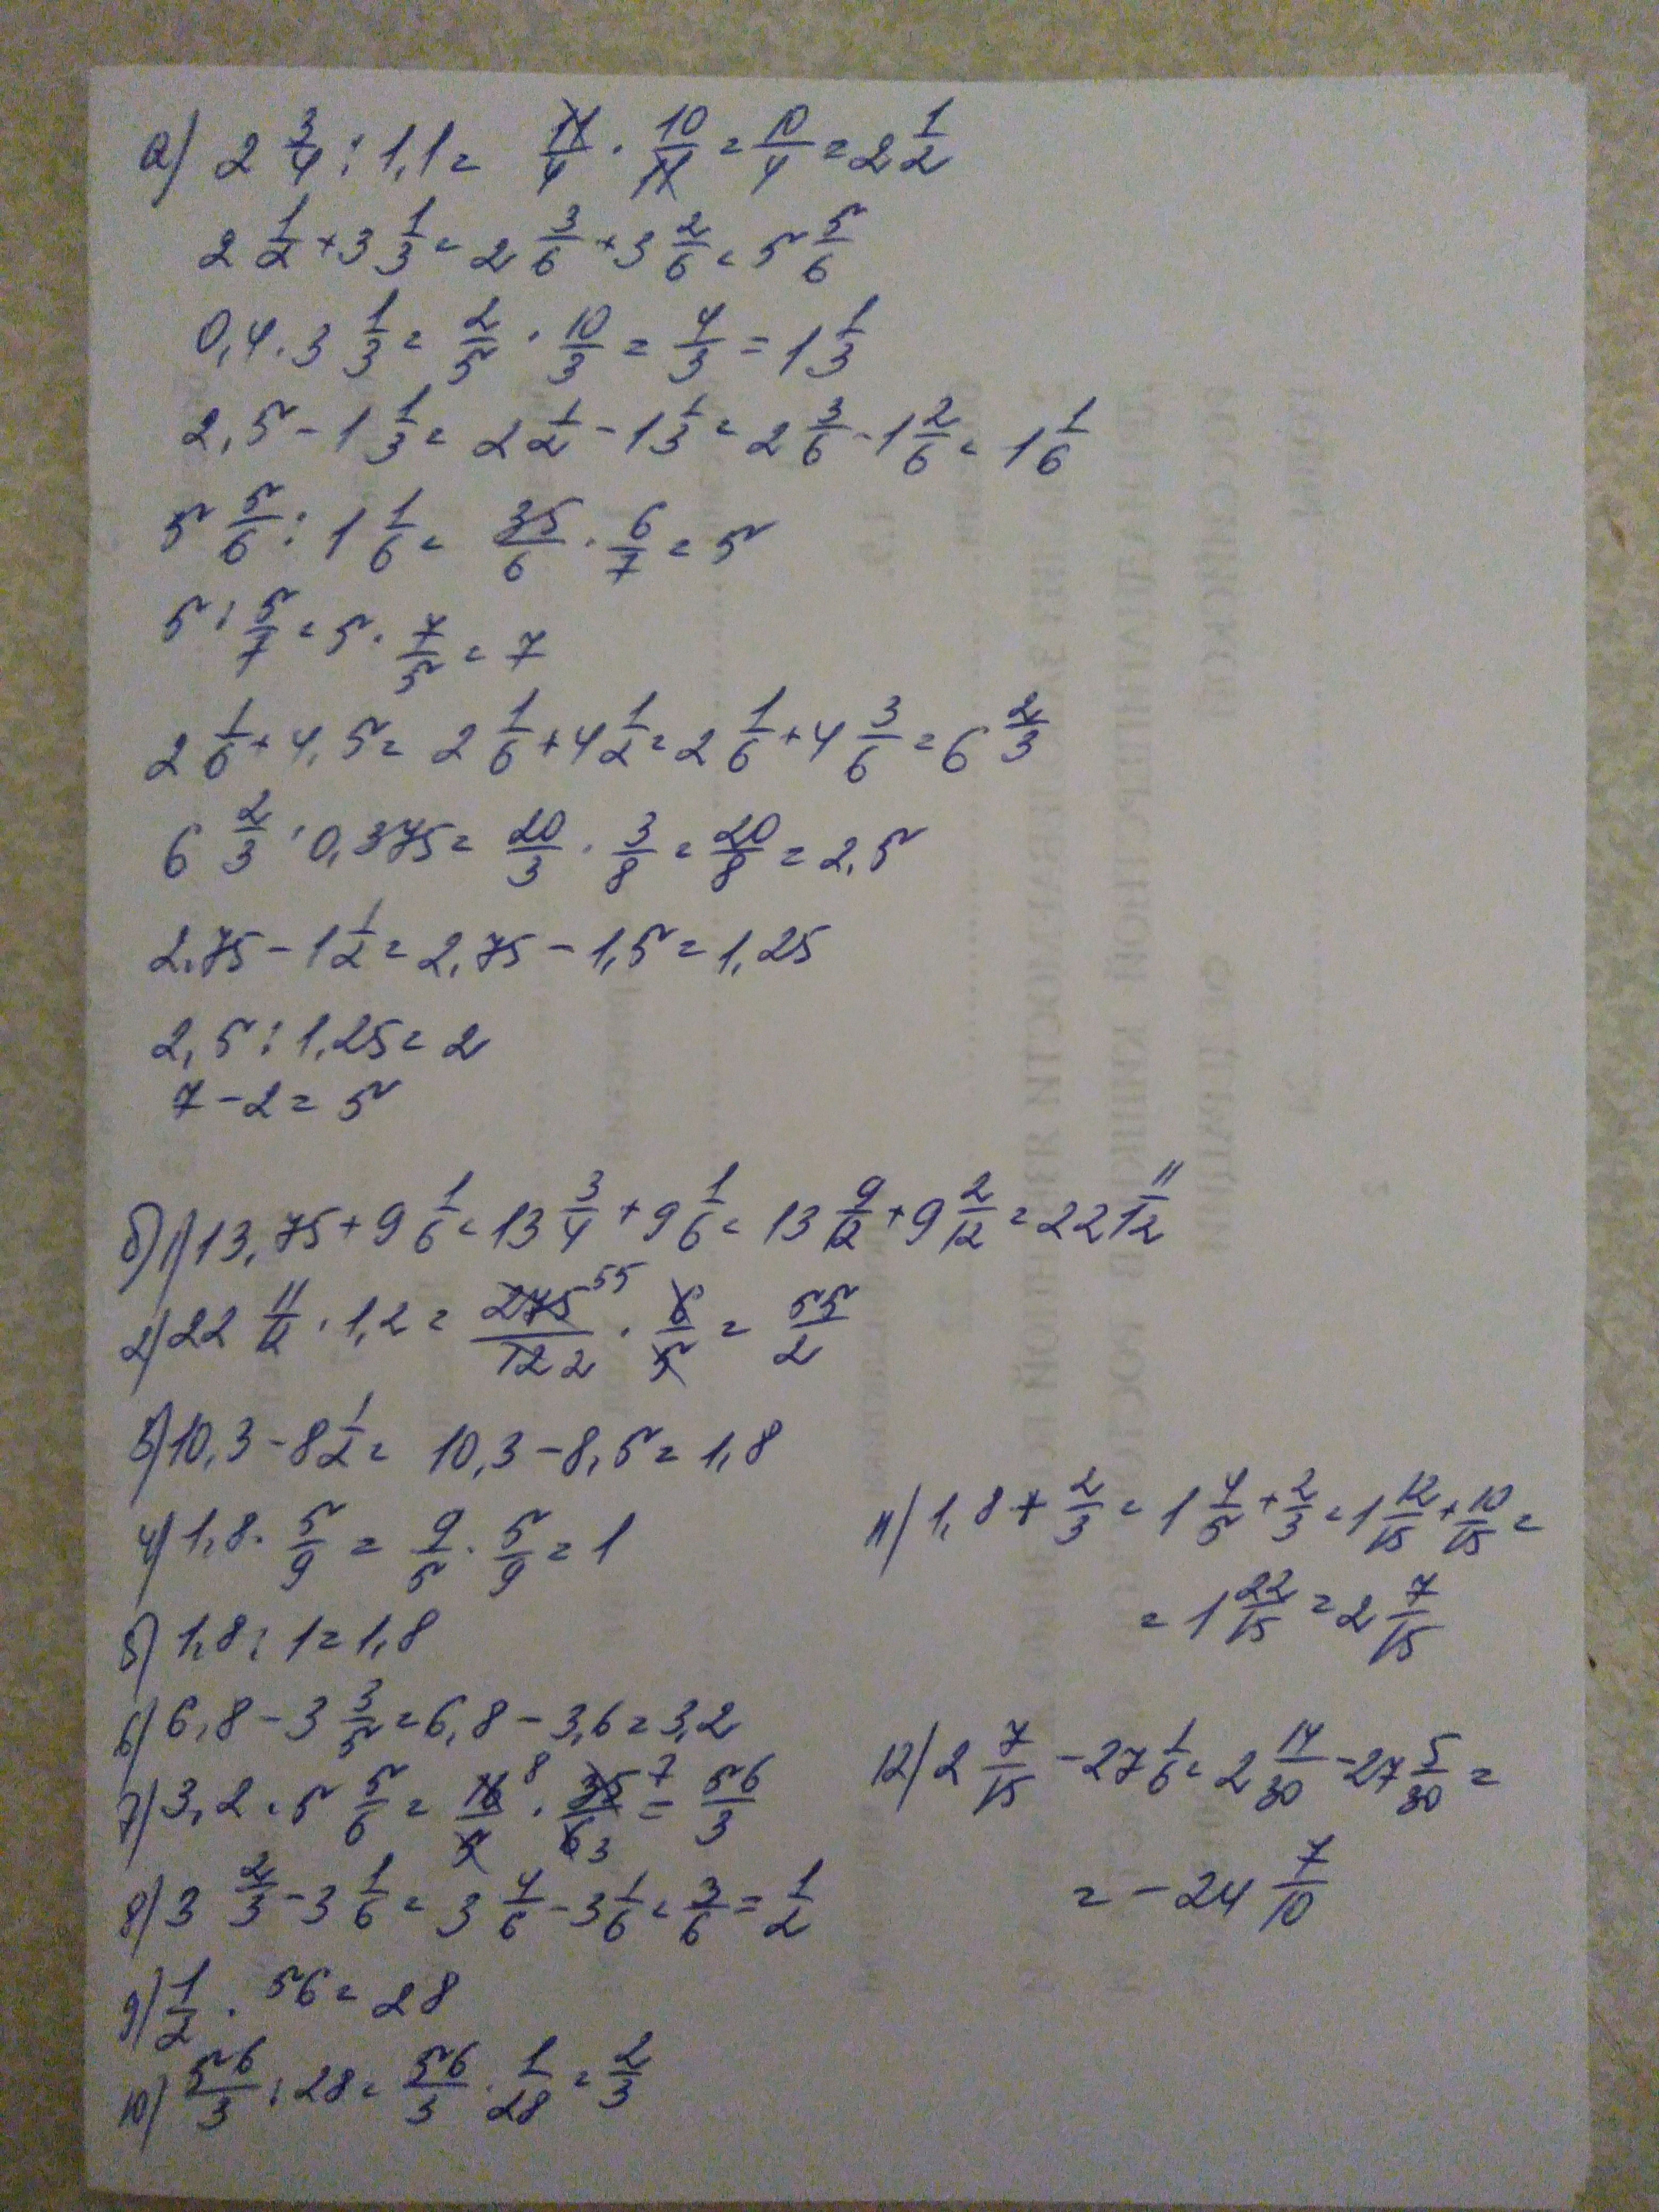 а) 2 3/4 : 1,1 = 11/4 · 10/11 = 10/4 = 2 1/2
2 1/2 + 3 1/3 = 2 3/6 + 3 2/6 = 5 5/6
0,4 · 3 1/3 = 2/5 · 10/3 = 4/3 = 1 1/3
2,5 - 1 1/3 = 2 1/2 - 1 1/3 = 2 3/6 - 1 2/6 = 1 1/6
5 5/6 : 1 1/6 = 35/6 · 6/7 = 5
5 : 5/7 = 5 · 7/5 = 7
2 1/6 + 4,5 = 2 1/6 + 4 1/2 = 2 1/6 + 4 3/6 = 6 2/3
6 2/3 · 0,375 = 20/3 · 3/8 = 20/8 = 2,5
2,75 - 1 1/2 = 2,75 - 1,5 = 1,25
2,5 : 1,25 = 2
7 - 2 = 5
б) 1) 13,75 + 9 1/6 = 13 3/4 + 9 1/6 = 13 9/12 + 9 2/12 = 22 11/12
2) 22 11/12 · 1,2 = 275 55/12 2 · 6/5 = 55/2
3) 10,3 - 8 1/2 = 10,3 - 8,5 = 1,8
4) 1,8 · 5/9 = 9/5 · 5/9 = 1
5) 1,8 : 1 = 1,8
6) 6,8 - 3 3/5 = 6,8 - 3,6 = 3,2
7) 3,2 · 5 5/6 = 16 8/5 · 35 7/6 3 = 56/3
8) 3 2/3 - 3 1/6 = 3 4/6 - 3 1/6 = 3/6 = 1/2
9) 1/2 · 56 = 28
10) 56/3 : 28 = 56/3 · 1/28 = 2/3
11) 1,8 + 2/3 = 1 4/5 + 2/3 = 1 12/15 + 10/15 =
= 1 22/15 = 2 7/15
12) 2 7/15 - 27 1/6 = 2 14/30 - 27 5/30 =
= - 24 7/10